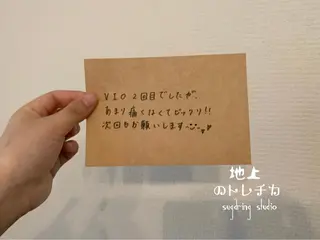 VIO 2回目でしたが、
あまり痛くなくてビックリ!!
次回もお願いします
地上
のトレチカ
sugaring studio